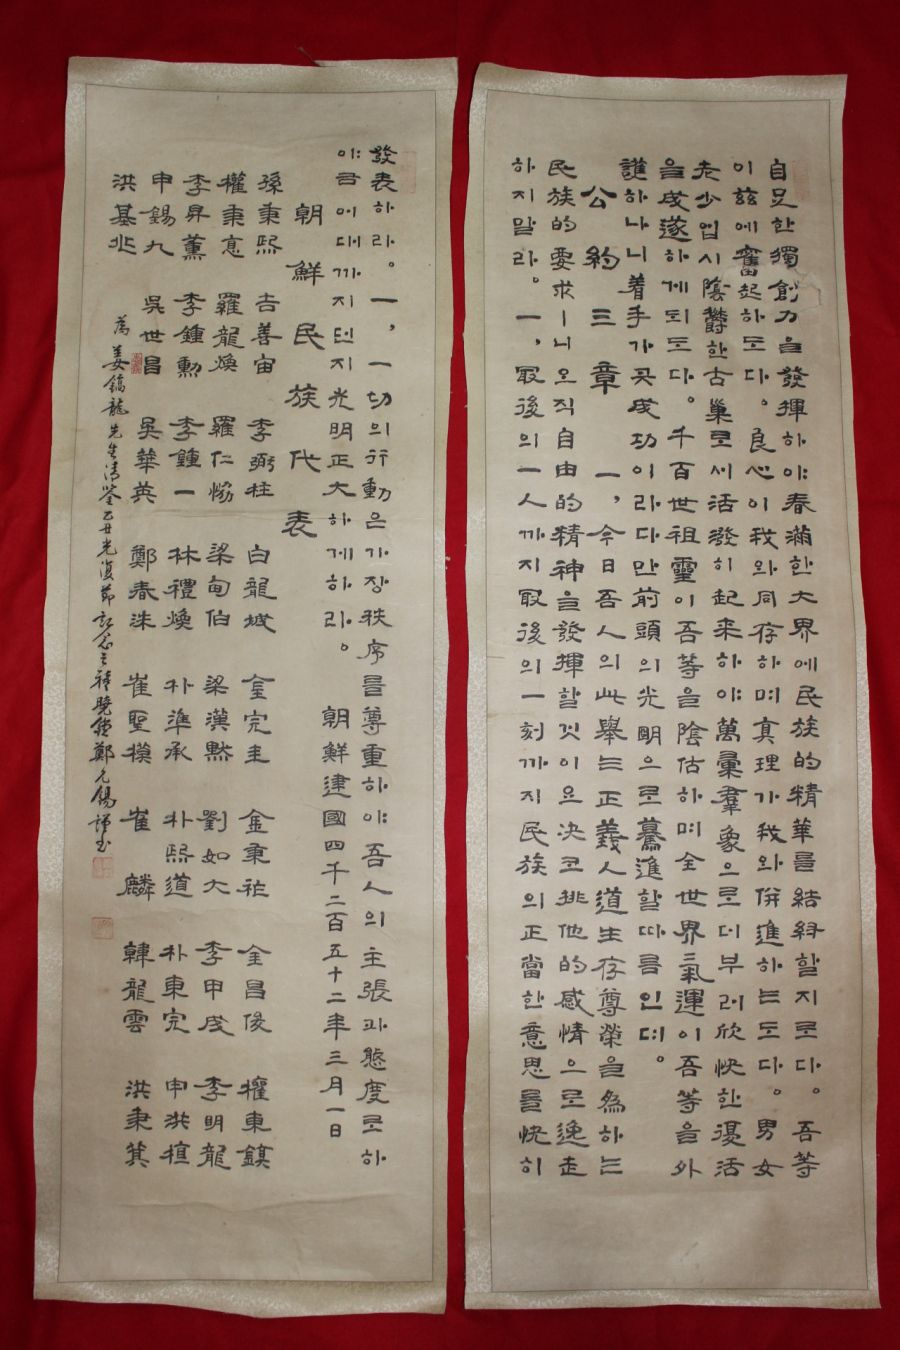 自足한獨創力을發揮하야春滿한大界에民族的精華를結紐할지로다。吾等
이玆에奮起하도다。良心이我와同存하며眞理가我와併進하는도다。男女
老少업시陰鬱한古巢로서活潑히起來하야萬彙羣象으로더부러欣快한復活
을成遂하게되도다。千百世祖靈이吾等을陰佑하며全世界氣運이吾等을外
護하나니着手가곳成功이라다만前頭의光明으로驀進할따름인뎌。
公約三章 一,今日吾人의此擧는正義人道生存尊榮을爲하는
民族的要求ㅣ니오직自由的精神을發揮할것이오決코排他的感情으로逸走
하지말라。一,最後의一人까지最後의一刻까지民族의正當한意思를快히
發表하라。一,一切의行動은가장秩序를尊重하야吾人의主張과態度로하
야금어대까지던지光明正大하게하라。 朝鮮建國四千二百五十二年三月一日
朝鮮民族代表
孫秉熙 吉善宙 李弼柱 白龍城 金完圭 金秉祚 金昌俊 權東鎭
權秉悳 羅龍煥 羅仁協 梁甸伯 梁漢黙 劉如大 李甲成 李明龍
李昇薰 李鍾勳 李鍾一 林禮煥 朴準承 朴熙道 朴東完 申洪植
申錫九 吳世昌 吳華英 鄭春洙 崔聖模 崔麟 韓龍雲 洪秉箕
洪基兆
為姜鎬龍先生清鑒乙丑光復節記念之 曉 鄭元錫謹書